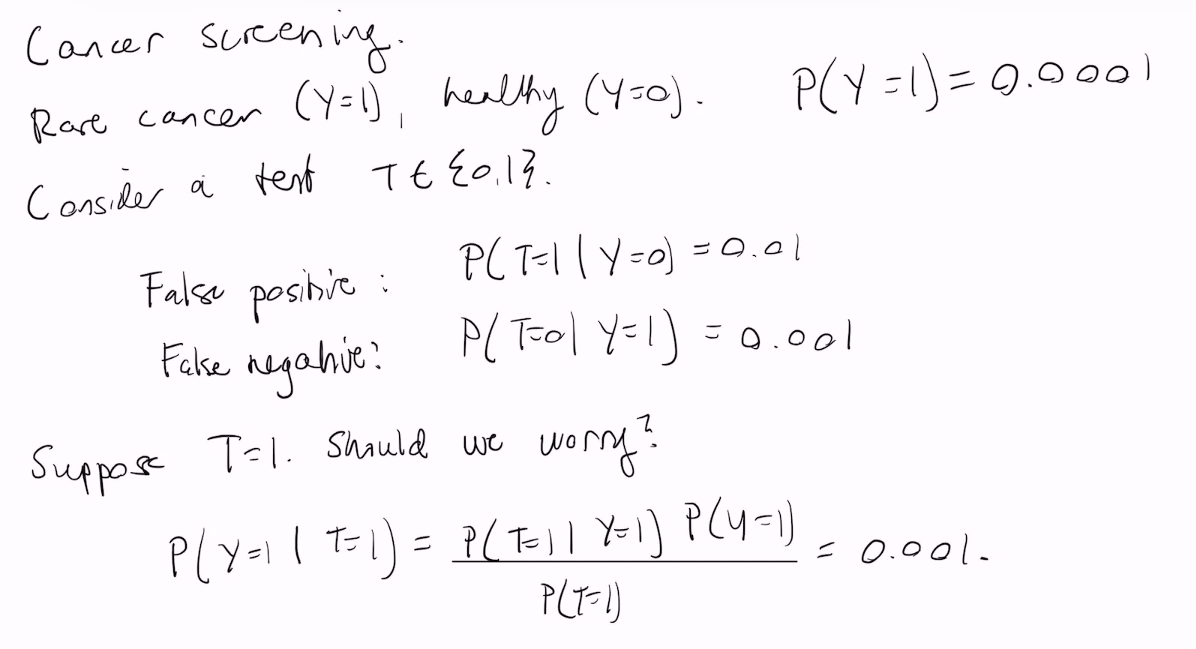 Cancer screening.
Rare cancer (Y=1), healthy (Y=0). P(Y=1)=0.0001
Consider a test T∈{0,1}.
False positive: P(T=1|Y=0)=0.01
False negative: P(T=0|Y=1)=0.001
Suppose T=1. Should we worry?
P(Y=1|T=1) = P(T=1|Y=1) P(Y=1) / P(T=1) = 0.001.